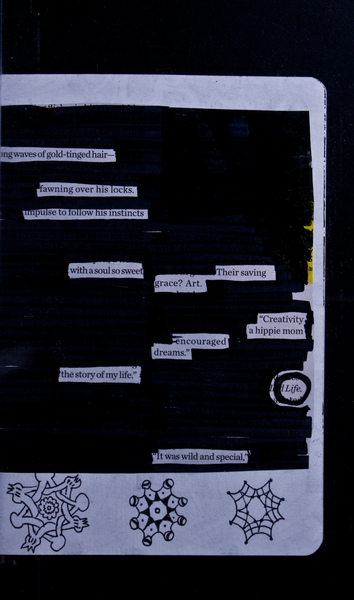 ong waves of gold-tinged hair—
fawning over his locks.
impulse to follow his instincts
with a soul so sweet
Their saving
grace? Art.
“Creativity
a hippie mom
encouraged
dreams.”
the story of my life.”
Life.
“It was wild and special,”